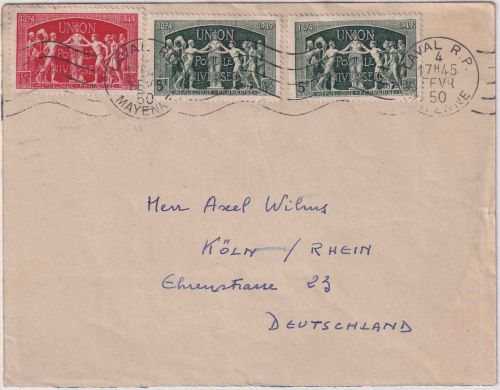 1874 1949
UNION
POSTALE
UNIVERSELLE
15F
REPUBLIQUE FRANÇAISE
1874 1949
UNION
POSTALE
UNIVERSELLE
5F
REPUBLIQUE FRANÇAISE
1874 1949
UNION
POSTALE
UNIVERSELLE
5F
REPUBLIQUE FRANÇAISE
LAVAL R.P.
FEVR
50
MAYENNE
LAVAL R.P.
4
17H45
FEVR
50
MAYENNE
Herr Axel Wilms
KÖLN / RHEIN
Ehrenstrasse 23
DEUTSCHLAND